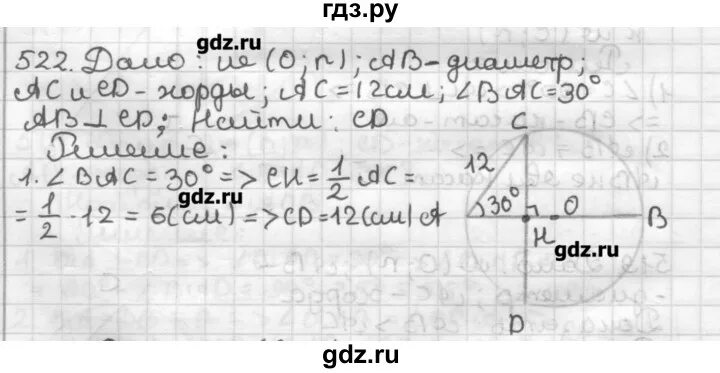 гдз.ру
gdz.ru
522. Дано: (O; r); AB - диаметр;
AC и CD - хорды; AC = 12 см; ∠BAC = 30°
AB ⊥ CD; Найти: CD
Решение:
1. ∠BAC = 30° => CH = 1/2 AC =
= 1/2 · 12 = 6 (см) => CD = 12 (см)
gdz.ru
C
12
A 30° H O B
gdz.ru
D
gdz.ru